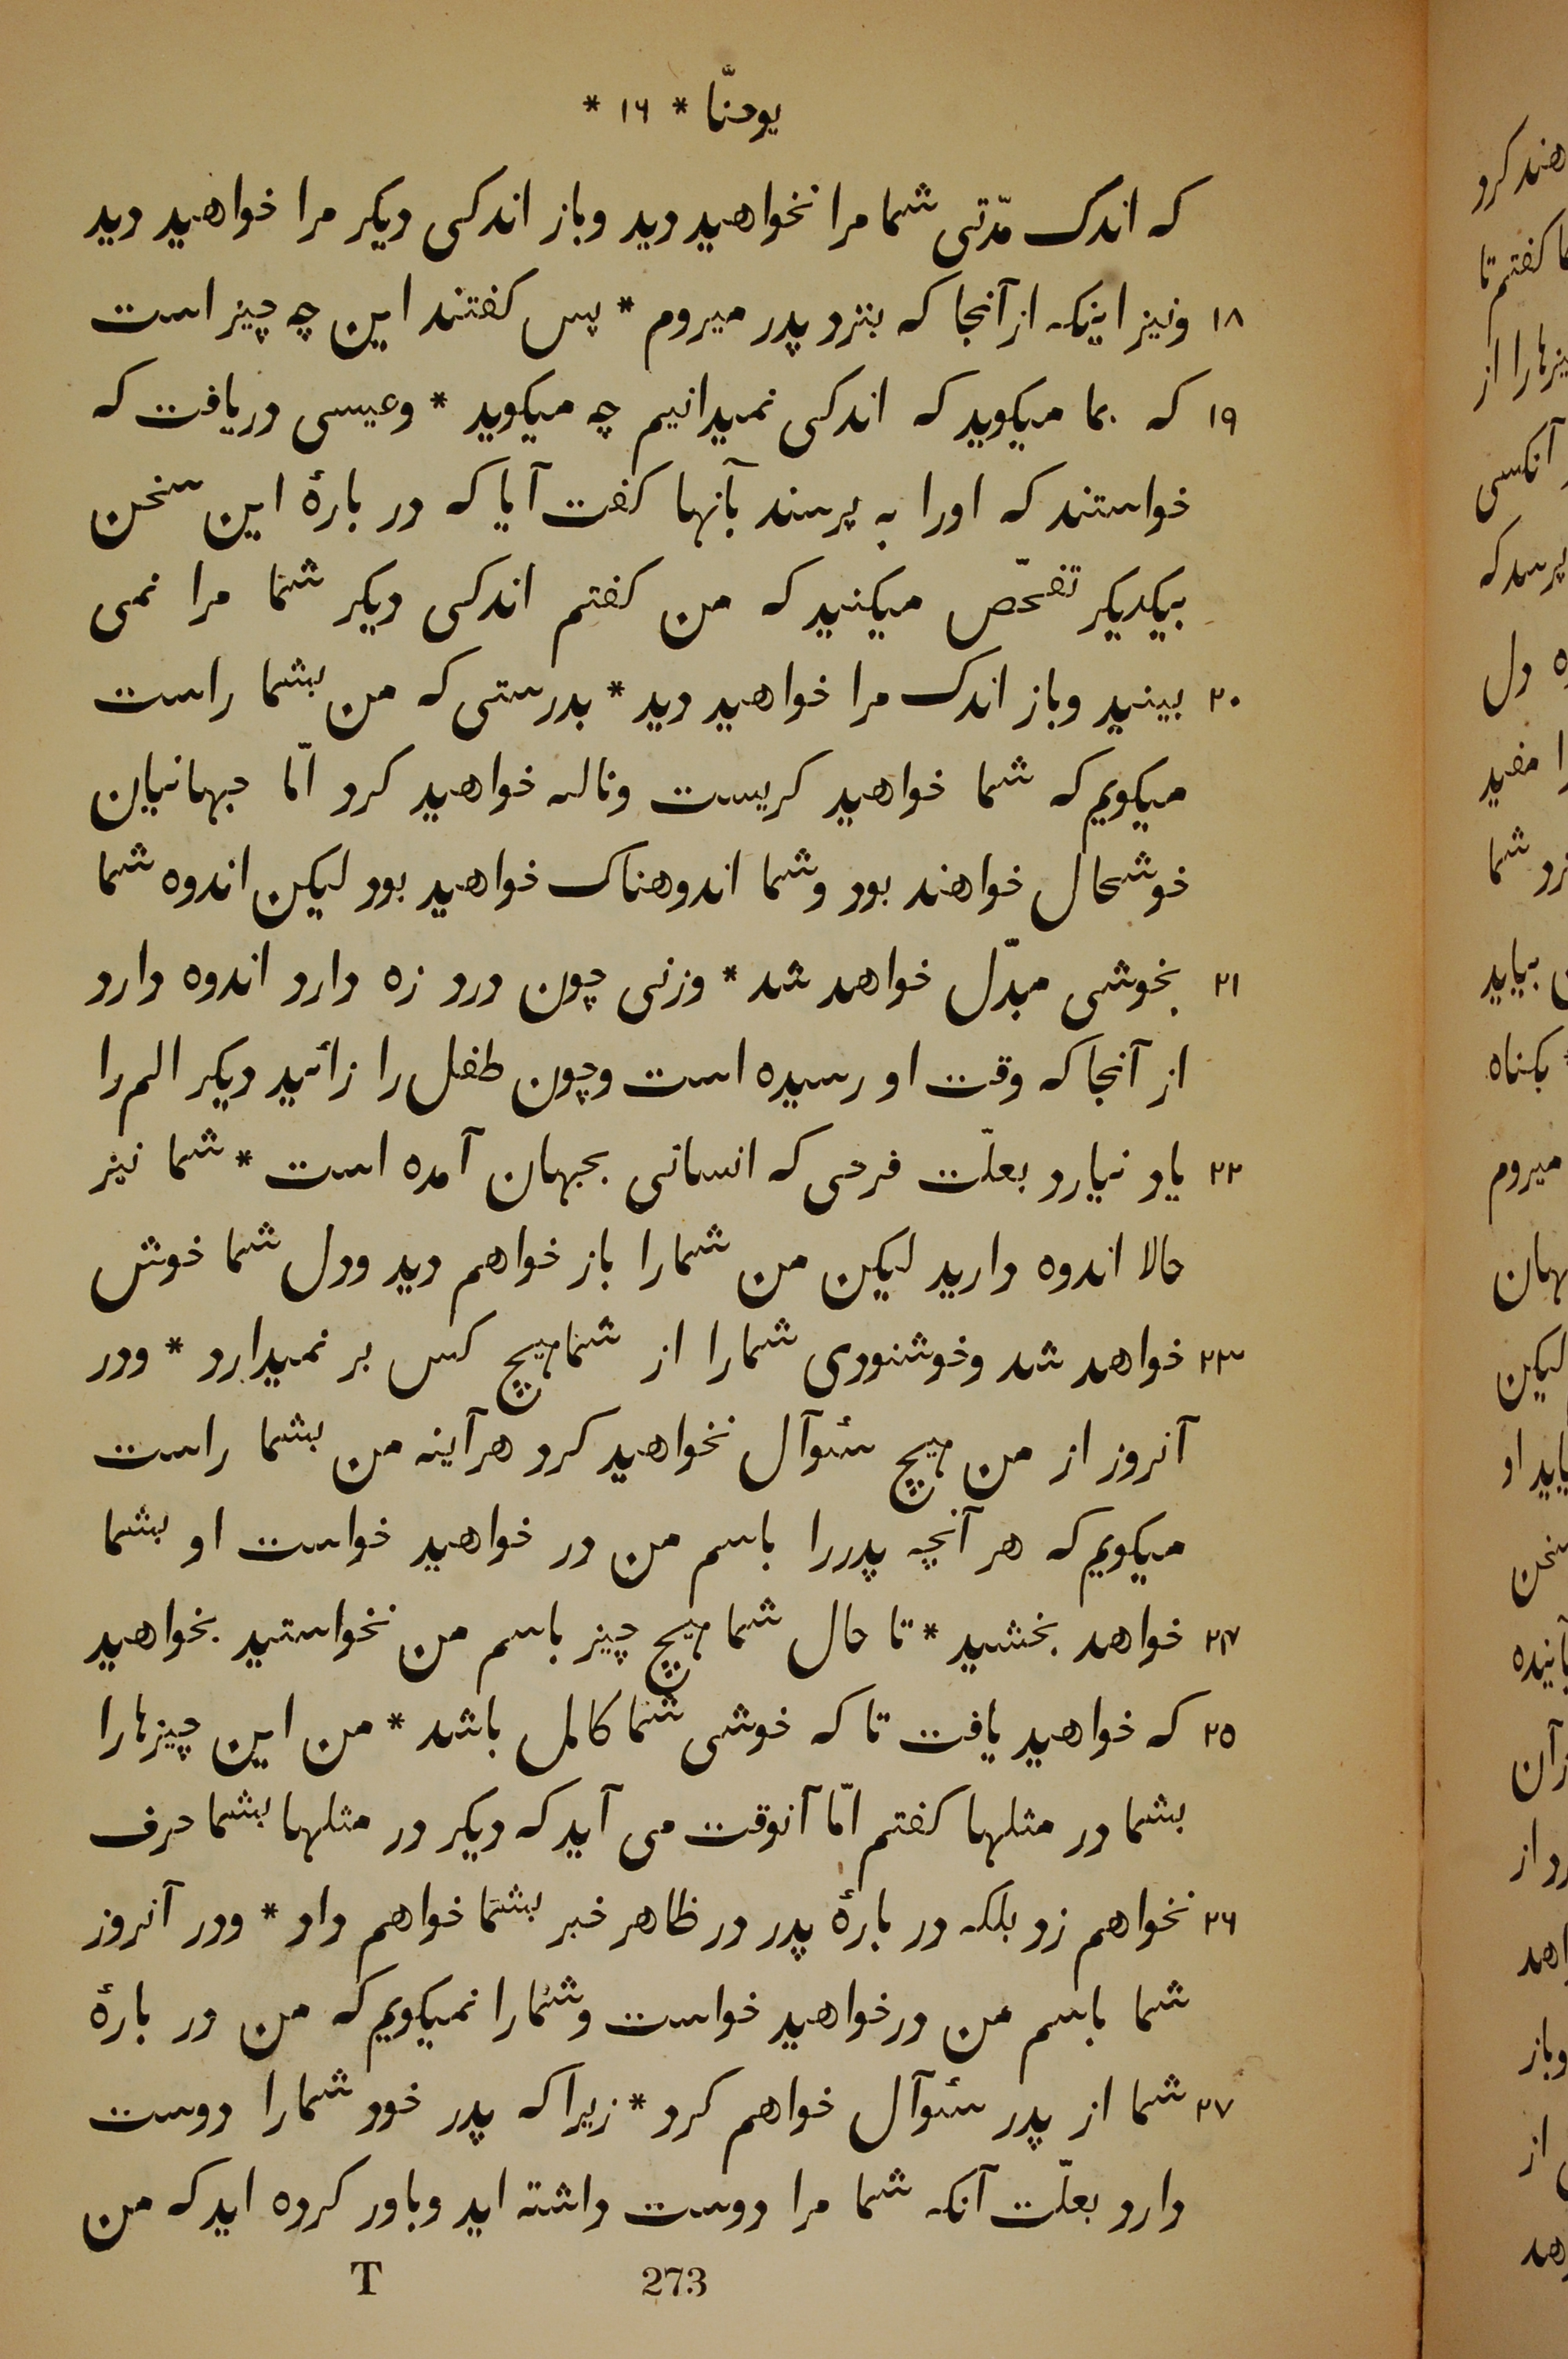 یوحنّا * ۱۶ *
که اندک مدّتی شما مرا نخواهید دید وباز اندکی دیکر مرا خواهید دید
۱۸ ونیز اینکه از آنجا که بنزد پدر میروم * پس کفتند این چه چیز است
۱۹ که بما میکوید که اندکی نمیدانیم چه میکوید * وعیسی دریافت که
خواستند که اورا به پرسند بآنها کفت آیا که در بارهٔ این سخن
بیکدیکر تفحّص میکنید که من کفتم اندکی دیکر شما مرا نمی
۲۰ بینید وباز اندک مرا خواهید دید * بدرستی که من بشما راست
میکویم که شما خواهید کریست وناله خواهید کرد امّا جهانیان
خوشحال خواهند بود وشما اندوهناک خواهید بود لیکن اندوه شما
۲۱ بخوشی مبدّل خواهد شد * وزنی چون درد زه دارد اندوه دارد
از آنجا که وقت او رسیده است وچون طفل را زائید دیکر الم را
۲۲ یاد نیارد بعلّت فرحی که انسانی بجهان آمده است * شما نیز
حالا اندوه دارید لیکن من شمارا باز خواهم دید ودل شما خوش
۲۳ خواهد شد وخوشنودی شمارا از شما هیچ کس بر نمیدارد * ودر
آنروز از من هیچ سئوآل نخواهید کرد هرآینه من بشما راست
میکویم که هر آنچه پدررا باسم من در خواهید خواست او بشما
۲۴ خواهد بخشید * تا حال شما هیچ چیز باسم من نخواستید بخواهید
۲۵ که خواهید یافت تا که خوشی شما کامل باشد * من این چیزهارا
بشما در مثلها کفتم امّا آنوقت می آید که دیکر در مثلها بشما حرف
۲۶ نخواهم زد بلکه در بارهٔ پدر در ظاهر خبر بشما خواهم داد * ودر آنروز
شما باسم من درخواهید خواست وشمارا نمیکویم که من در بارهٔ
۲۷ شما از پدر سئوآل خواهم کرد * زیرا که پدر خود شمارا دوست
دارد بعلّت آنکه شما مرا دوست داشته اید وباور کرده اید که من
273 T
هند کرد
کفتم تا
یزهارا از
آنکسی
پرسد که
دل
مفید
زد شما
بیاید
بکناه
میروم
لیکن
یاید او
سخن
آن
رد از
وباز
از